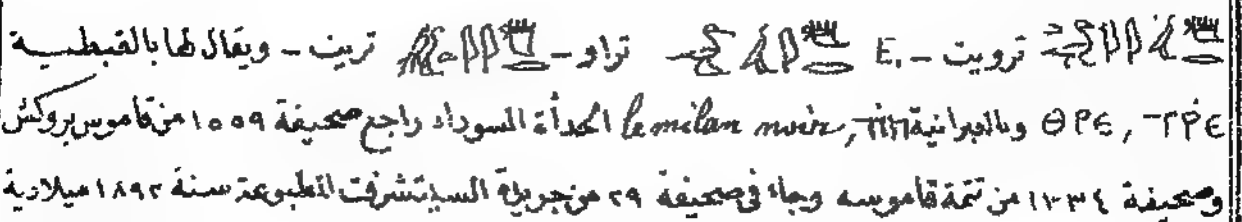 ترويت - E. تراو - تريت - ويقال لها بالقبطية
ⲑⲣⲉ, ⲧⲣⲉ وبالعبرانية le milan noir الحدأة السوداء راجع صحيفة ١٥٥٩ من قاموس بروكش
وصحيفة ١٣٣٤ من تتمة قاموسه وجاء في صحيفة ٢٩ من جريدة السيتشرفت المطبوعة سنة ١٨٩٢ ميلادية